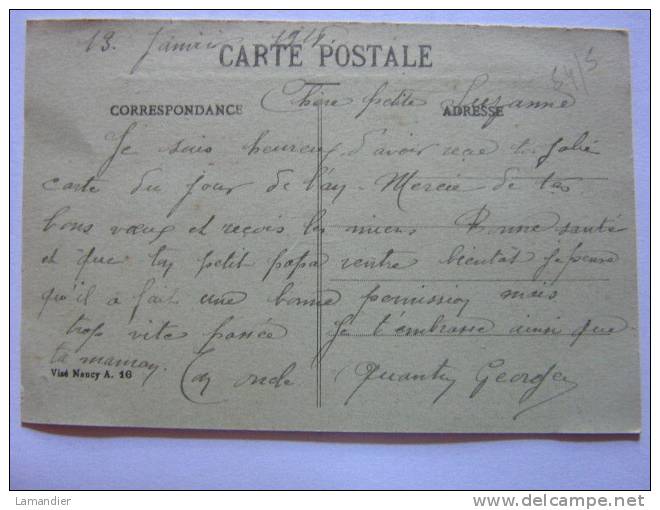 13. Janvier 191
CARTE POSTALE
54/5
CORRESPONDANCE
ADRESSE
Chère petite Suzanne
Je suis heureux d'avoir reçe ta jolie
carte du jour de l'an - Mercie de tas
bons vœux et reçois les miens Bonne santé
et que ton petit papa rentre bientôt je pense
qu'il a fait une bonne permission mais
trop vite passée Je t'embrasse ainsi que
ta maman. Ton oncle Quantin Georges
Visé Nancy A. 16
Lamandier
www.delcampe.net